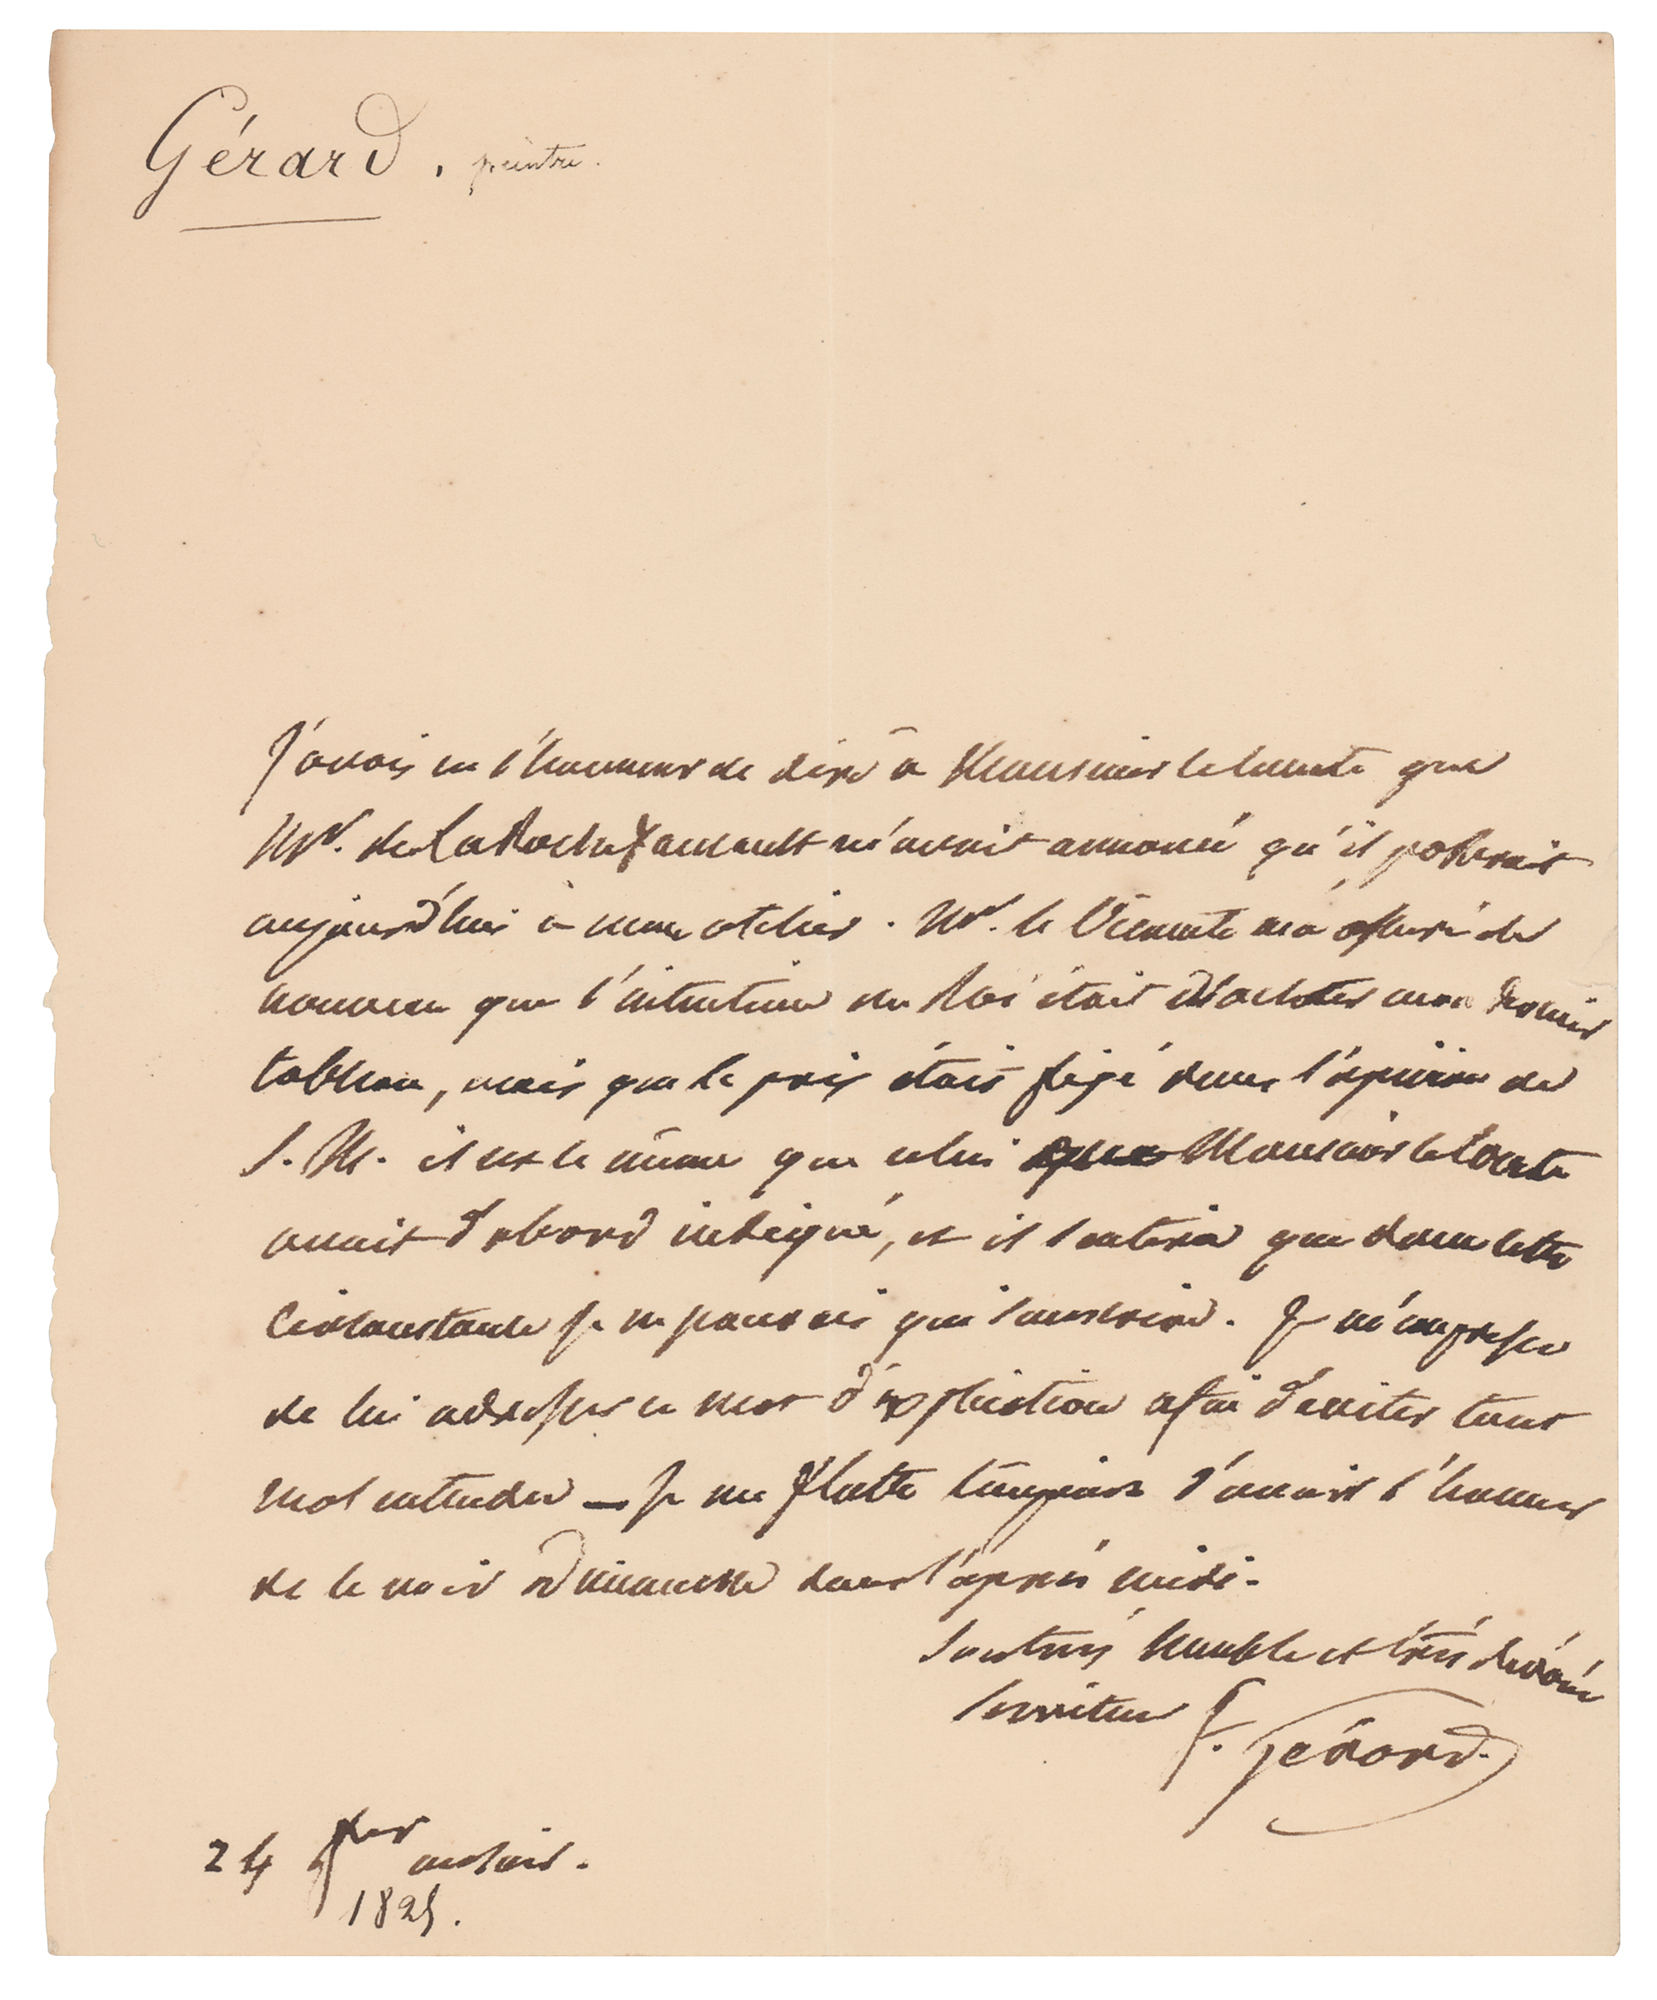 Gérard, peintre.
J'avais eu l'honneur de dire à Monsieur le Comte que
Mr. de La Rochefaucault m'avait annoncé qu'il passerait
aujourd'hui à mon atelier. Mr. le Vicomte m'a assuré de
nouveau que l'intention du Roi était d'acheter mon dernier
tableau, mais que le prix était fixé dans l'opinion de
S. M. il est le même que celui que Monsieur le Comte
avait d'abord indiqué, et il sentira que dans cette
circonstance je ne pouvais que souscrire. Je m'empresse
de lui adresser ce mot d'explication afin d'éviter tout
mal entendu — Je me flatte toujours d'avoir l'honneur
de le voir dimanche dans l'après midi.
Son très humble et très dévoué
serviteur F. Gérard.
24 au soir.
1825.